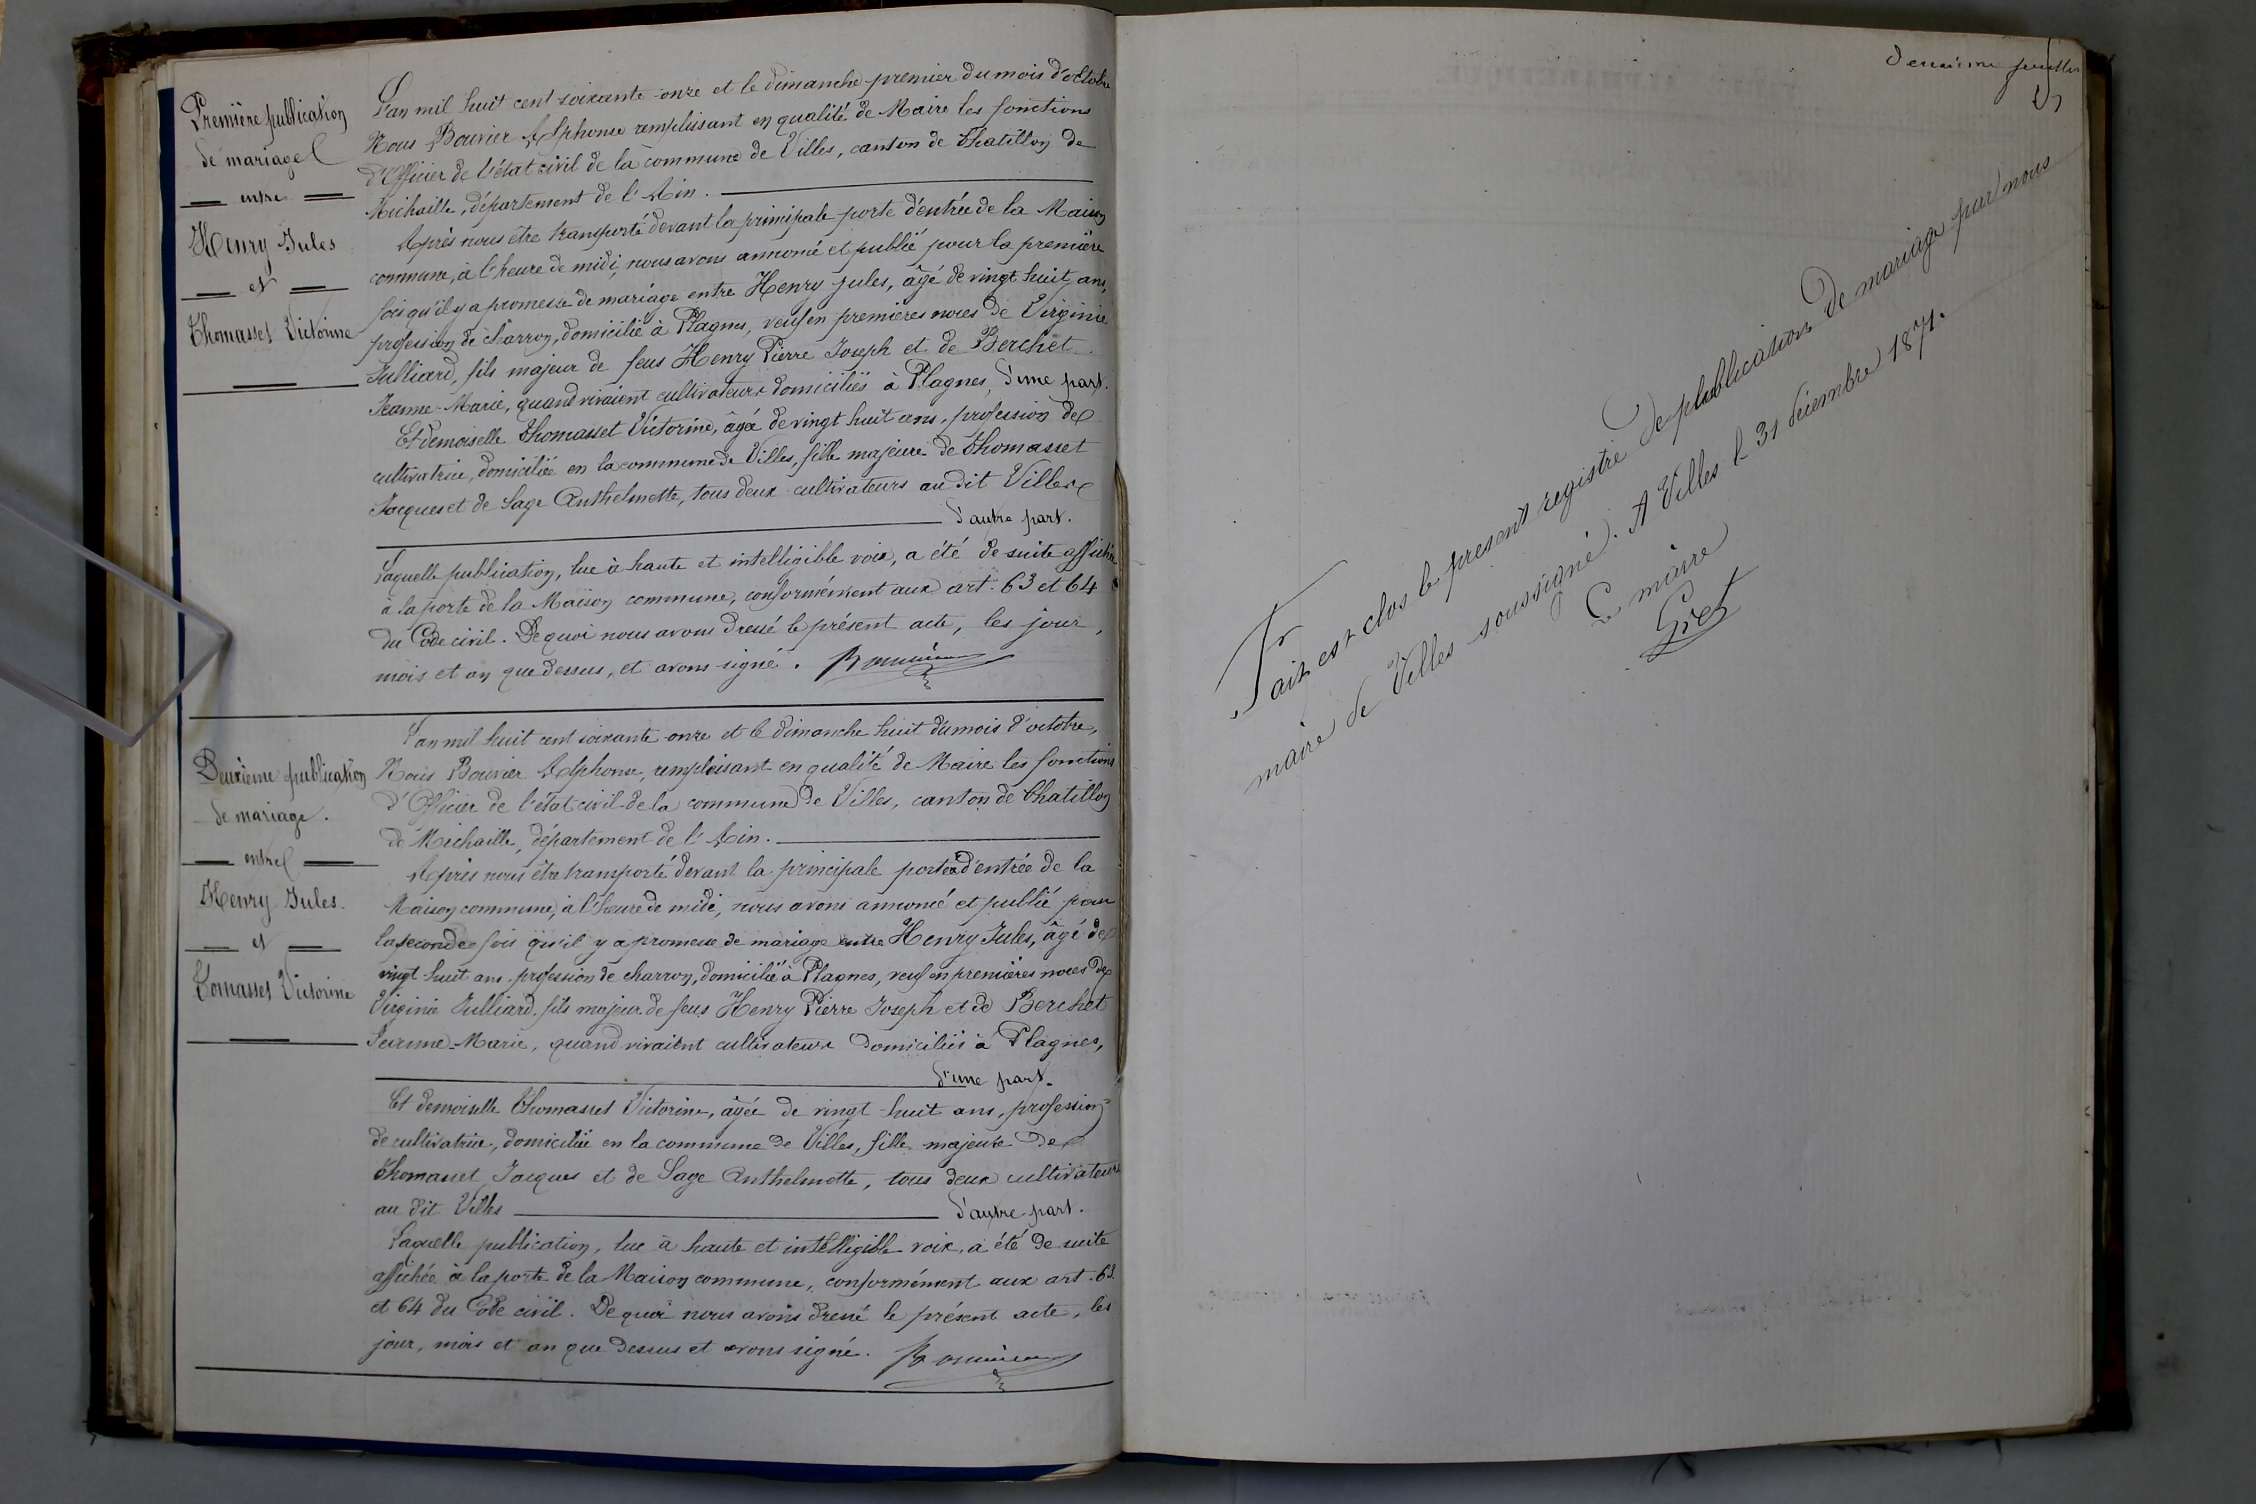 Première publication
de mariage
entre
Henry Jules
et
Thomasset Victorine
L'an mil huit cent soixante-onze et le dimanche premier du mois d'octobre
Nous Bouvier Alphonse remplissant en qualité de Maire les fonctions
d'Officier de l'état civil de la commune de Villes, canton de Chatillon de
Michaille, département de l'Ain.
Après nous être transporté devant la principale porte d'entrée de la Maison
commune, à l'heure de midi, nous avons annoncé et publié pour la première
fois qu'il y a promesse de mariage entre Henry Jules, âgé de vingt huit ans,
profession de charron, domicilié à Plagnes, veuf en premières noces de Virginie
Julliard, fils majeur de feus Henry Pierre Joseph et de Berchet
Jeanne-Marie, quand vivaient cultivateurs domiciliés à Plagnes, d'une part.
Et demoiselle Thomasset Victorine, âgée de vingt huit ans, profession de
cultivatrice, domiciliée en la commune de Villes, fille majeure de Thomasset
Jacques et de Sage Anthelmette, tous deux cultivateurs au dit Villes
d'autre part.
Laquelle publication, lue à haute et intelligible voix, a été de suite affichée
à la porte de la Maison commune, conformément aux art. 63 et 64
du Code civil. De quoi nous avons dressé le présent acte, les jour,
mois et an que dessus, et avons signé. Bouvier
Deuxième publication
de mariage.
entre
Henry Jules.
et
Tomasset Victorine
L'an mil huit cent soixante-onze et le dimanche huit du mois d'octobre,
Nous Bouvier Alphonse, remplissant en qualité de Maire les fonctions
d'Officier de l'état civil de la commune de Villes, canton de Chatillon
de Michaille, département de l'Ain.
Après nous être transporté devant la principale porte d'entrée de la
Maison commune, à l'heure de midi, nous avons annoncé et publié pour
la seconde fois qu'il y a promesse de mariage entre Henry Jules, âgé de
vingt-huit ans, profession de charron, domicilié à Plagnes, veuf en premières noces de
Virginie Julliard, fils majeur de feus Henry Pierre Joseph et de Berchet
Jeanne-Marie, quand vivaient cultivateurs domiciliés à Plagnes,
d'une part.
Et demoiselle Thomasset Victorine, âgée de vingt-huit ans, profession
de cultivatrice, domiciliée en la commune de Villes, fille majeure de
Thomasset Jacques et de Sage Anthelmette, tous deux cultivateurs
au dit Villes d'autre part.
Laquelle publication, lue à haute et intelligible voix, a été de suite
affichée à la porte de la Maison commune, conformément aux art. 63
et 64 du Code civil. De quoi nous avons dressé le présent acte, les
jour, mois et an que dessus et avons signé. Bouvier
Fait est clos le present registre de publication de mariage par nous
maire de Villes soussigné. A Villes le 31 décembre 1871.
Le maire